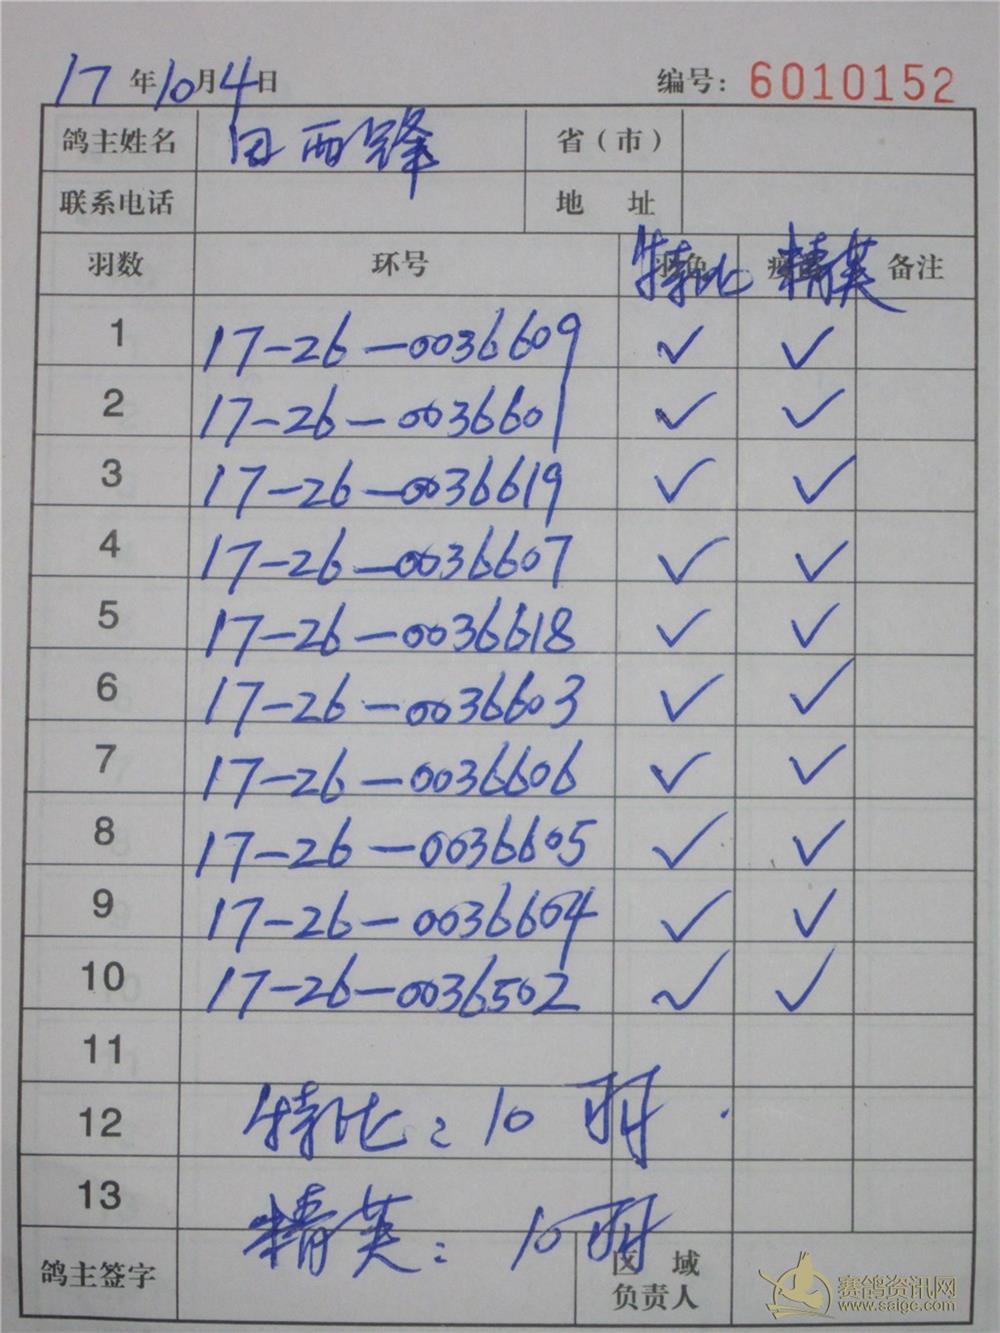 17年10月4日 编号：6010152
鸽主姓名 田西锋 省（市）
联系电话 地 址
羽数 环号 特比 精英 备注
1 17-26-0036609 ✓ ✓
2 17-26-0036601 ✓ ✓
3 17-26-0036619 ✓ ✓
4 17-26-0036607 ✓ ✓
5 17-26-0036618 ✓ ✓
6 17-26-0036603 ✓ ✓
7 17-26-0036606 ✓ ✓
8 17-26-0036605 ✓ ✓
9 17-26-0036604 ✓ ✓
10 17-26-0036502 ✓ ✓
11
12 特比：10羽
13 精英：10羽
鸽主签字 区域负责人
赛鸽资讯网
www.saigc.com